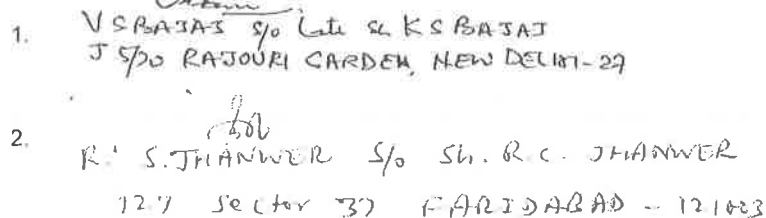 1. V S BAJAJ S/o Late Sh K S BAJAJ
J 5/20 RAJOURI GARDEN, NEW DELHI-27
2.
R. S. JHANWER S/o Sh. R. C. JHANWER
127 Sector 37 FARIDABAD - 121003